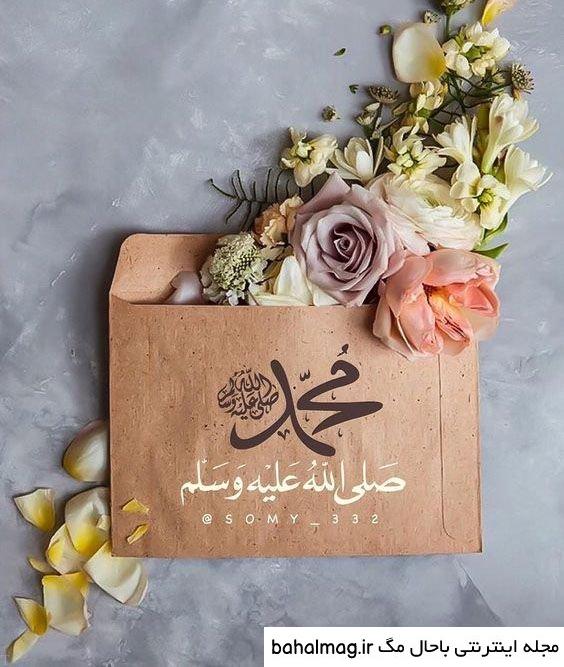 محمد صلى الله عليه وسلم
صَلى اللهُ عَلَيْه وَسَلّم
@SOMY_332
مجله اینترنتی باحال مگ bahalmag.ir